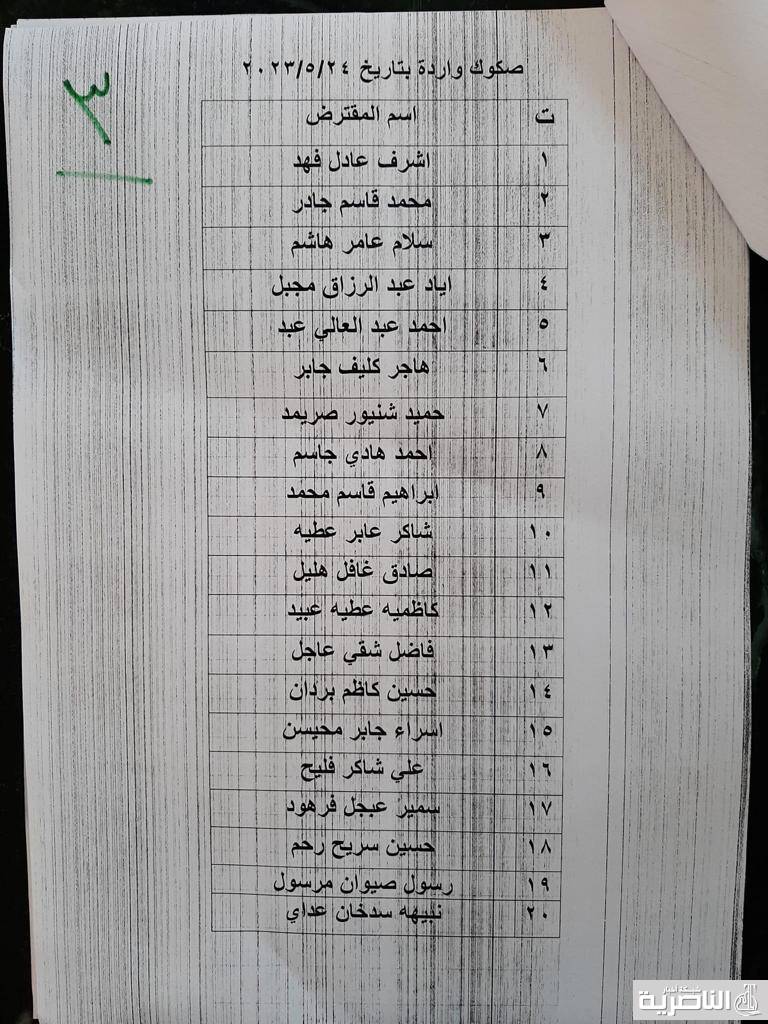 ٣
صكوك واردة بتاريخ ٢٠٢٣/٥/٢٤
ت اسم المقترض
١ اشرف عادل فهد
٢ محمد قاسم جادر
٣ سلام عامر هاشم
٤ اياد عبد الرزاق مجبل
٥ احمد عبد العالي عبد
٦ هاجر كليف جابر
٧ حميد شنيور صريمد
٨ احمد هادي جاسم
٩ ابراهيم قاسم محمد
١٠ شاكر عابر عطيه
١١ صادق غافل هليل
١٢ كاظميه عطيه عبيد
١٣ فاضل شقي عاجل
١٤ حسين كاظم بردان
١٥ اسراء جابر محيسن
١٦ علي شاكر فليح
١٧ سمير عبجل فرهود
١٨ حسين سريح رحم
١٩ رسول صيوان مرسول
٢٠ نبيهه سدخان عداي
شبكة أخبار
الناصرية